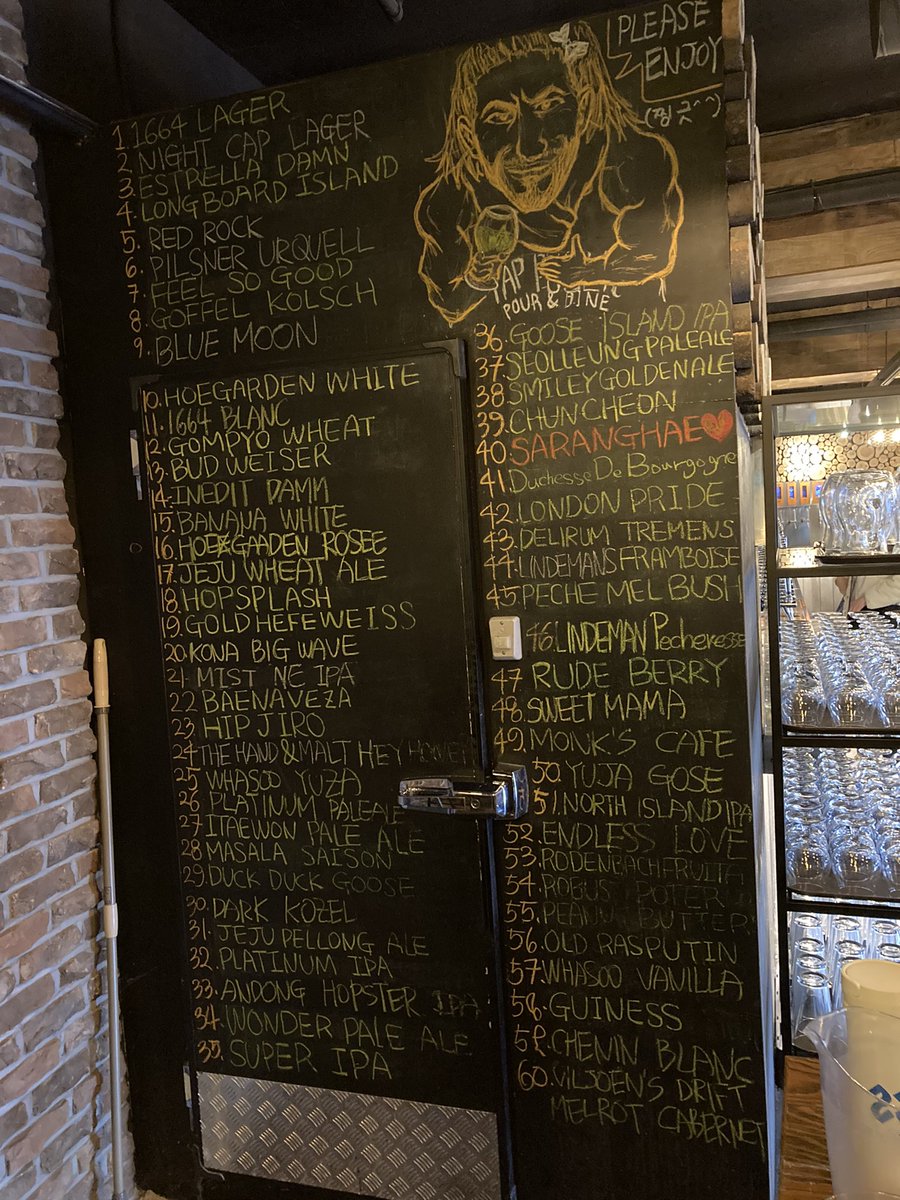 PLEASE
ENJOY
(찡긋^^)
1. 1664 LAGER
2. NIGHT CAP LAGER
3. ESTRELLA DAMN
4. LONG BOARD ISLAND
5. RED ROCK
6. PILSNER URQUELL
7. FEEL SO GOOD
8. GOFFEL KOLSCH
9. BLUE MOON
POUR & DINE
10. HOEGARDEN WHITE
11. 1664 BLANC
12. GOMPYO WHEAT
13. BUD WEISER
14. INEDIT DAMM
15. BANANA WHITE
16. HOEGAARDEN ROSEE
17. JEJU WHEAT ALE
18. HOPSPLASH
19. GOLD HEFEWEISS
20. KONA BIG WAVE
21. MIST NE IPA
22. BAENAVEZA
23. HIP JIRO
24. THE HAND & MALT HEY
25. WHASOO YUZA
26. PLATINUM PALEALE
27. ITAEWON PALE ALE
28. MASALA SAISON
29. DUCK DUCK GOOSE
30. DARK KOZEL
31. JEJU PELLONG ALE
32. PLATINUM IPA
33. ANDONG HOPSTER IPA
34. WONDER PALE ALE
35. SUPER IPA
36. GOOSE ISLAND IPA
37. SEOLLEUNG PALEALE
38. SMILEY GOLDEN ALE
39. CHUNCHEON
40. SARANGHAE
41. Duchesse De Bourgogne
42. LONDON PRIDE
43. DELIRUM TREMENS
44. LINDEMANS FRAMBOISE
45. PECHE MEL BUSH
46. LINDEMAN Pecheresse
47. RUDE BERRY
48. SWEET MAMA
49. MONK'S CAFE
50. YUJA GOSE
51. NORTH ISLAND IPA
52. ENDLESS LOVE
53. RODENBACH FRUITA
54. ROBUS POTER
55. PEANU BUTTER
56. OLD RASPUTIN
57. WHASOO VANILLA
58. GUINESS
59. CHENIN BLANC
60. VILJOEN'S DRIFT
MELROT CABERNET